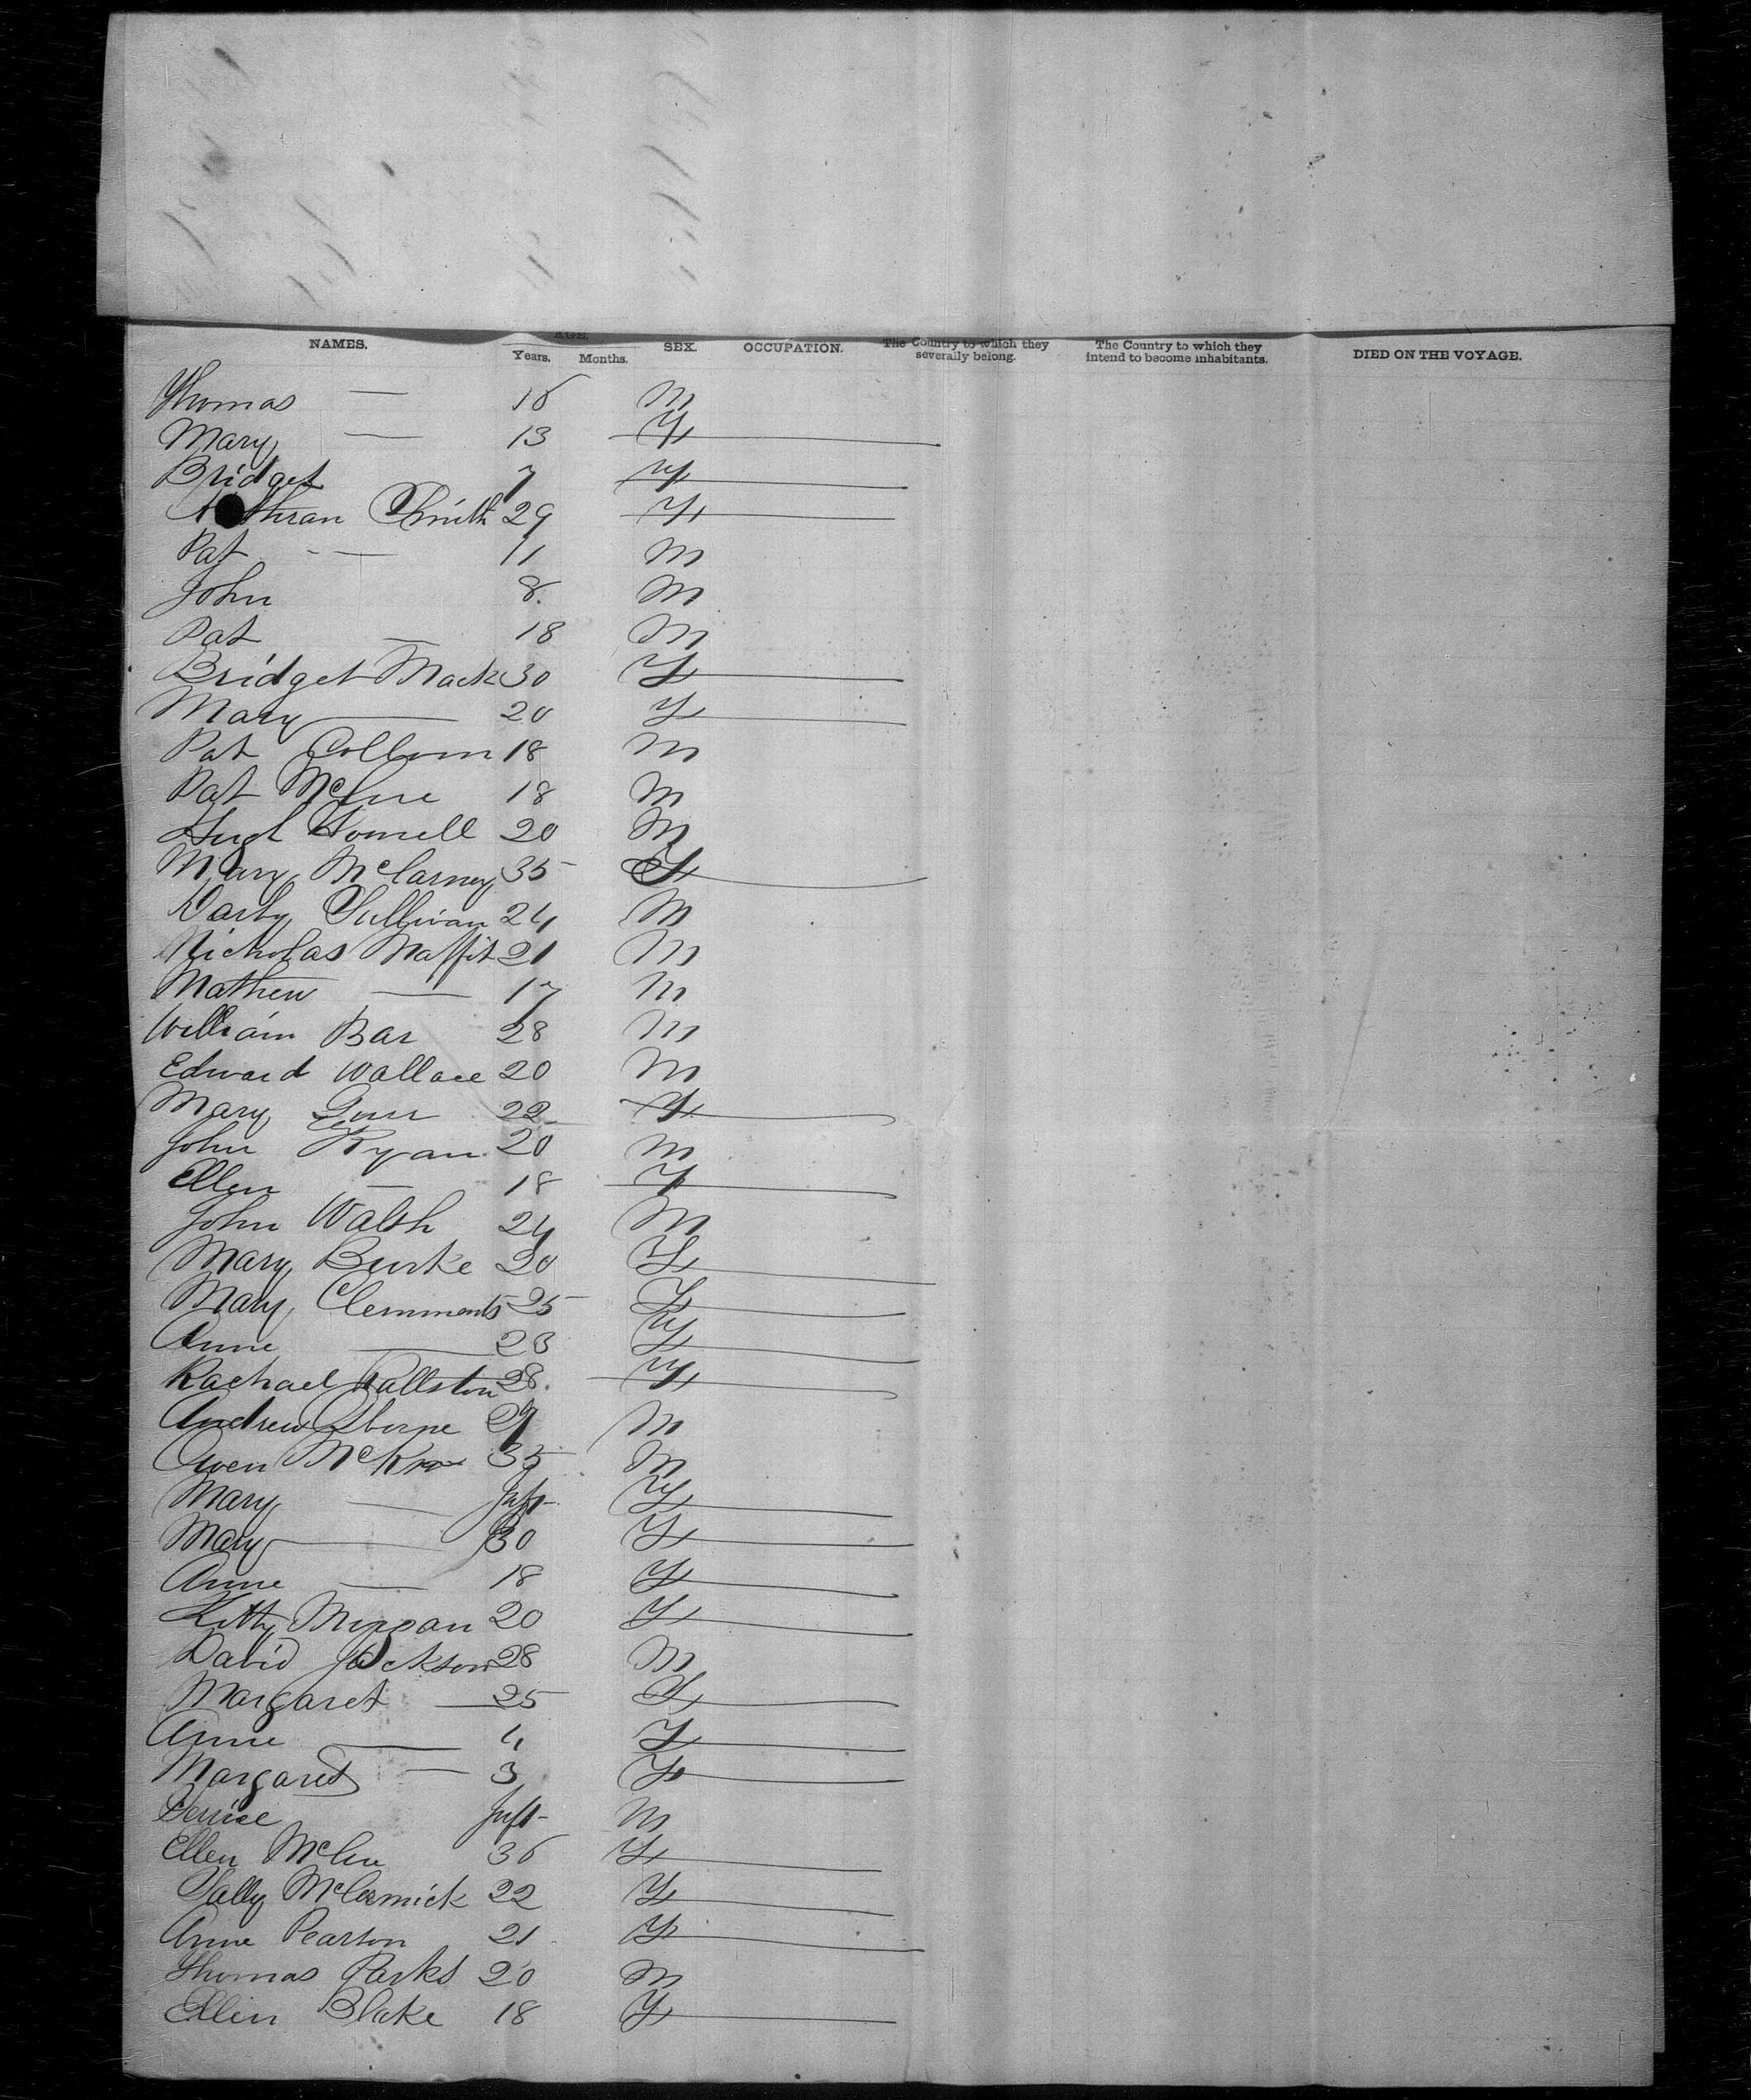 NAMES. AGE. SEX. OCCUPATION. The Country to which they severally belong. The Country to which they intend to become inhabitants. DIED ON THE VOYAGE.
Years. Months.
Thomas — 16 M
Mary — 13 F
Bridget 7 F
Smith 29 F
Pat — 11 M
John 8 M
Pat — 18 M
Bridget Mack 30 F
Mary — 20 F
Pat 18 M
Pat 18 M
Hugh 20 M
Mary McCarney 35 F
Darby Sullivan 24 M
Nicholas Maffit 21 M
Mathew — 17 M
William Bar 28 M
Edward Wallace 20 M
Mary 22 F
John Ryan 20 M
Ellen — 18 F
John Walsh 24 M
Mary Burke 20 F
Mary Clemments 25 F
Anne — 23 F
Rachael 28 F
Andrew M
Owen 35 M
Mary — Inft F
Mary — 30 F
Anne — 18 F
Kitty 20 F
David Jackson 28 M
Margaret — 25 F
Anne — 4 F
Margaret — 3 F
Inft M
Ellen 36 F
Sally McCormick 22 F
Anne Pearson 21 F
Thomas Parks 20 M
Ellen Blake 18 F